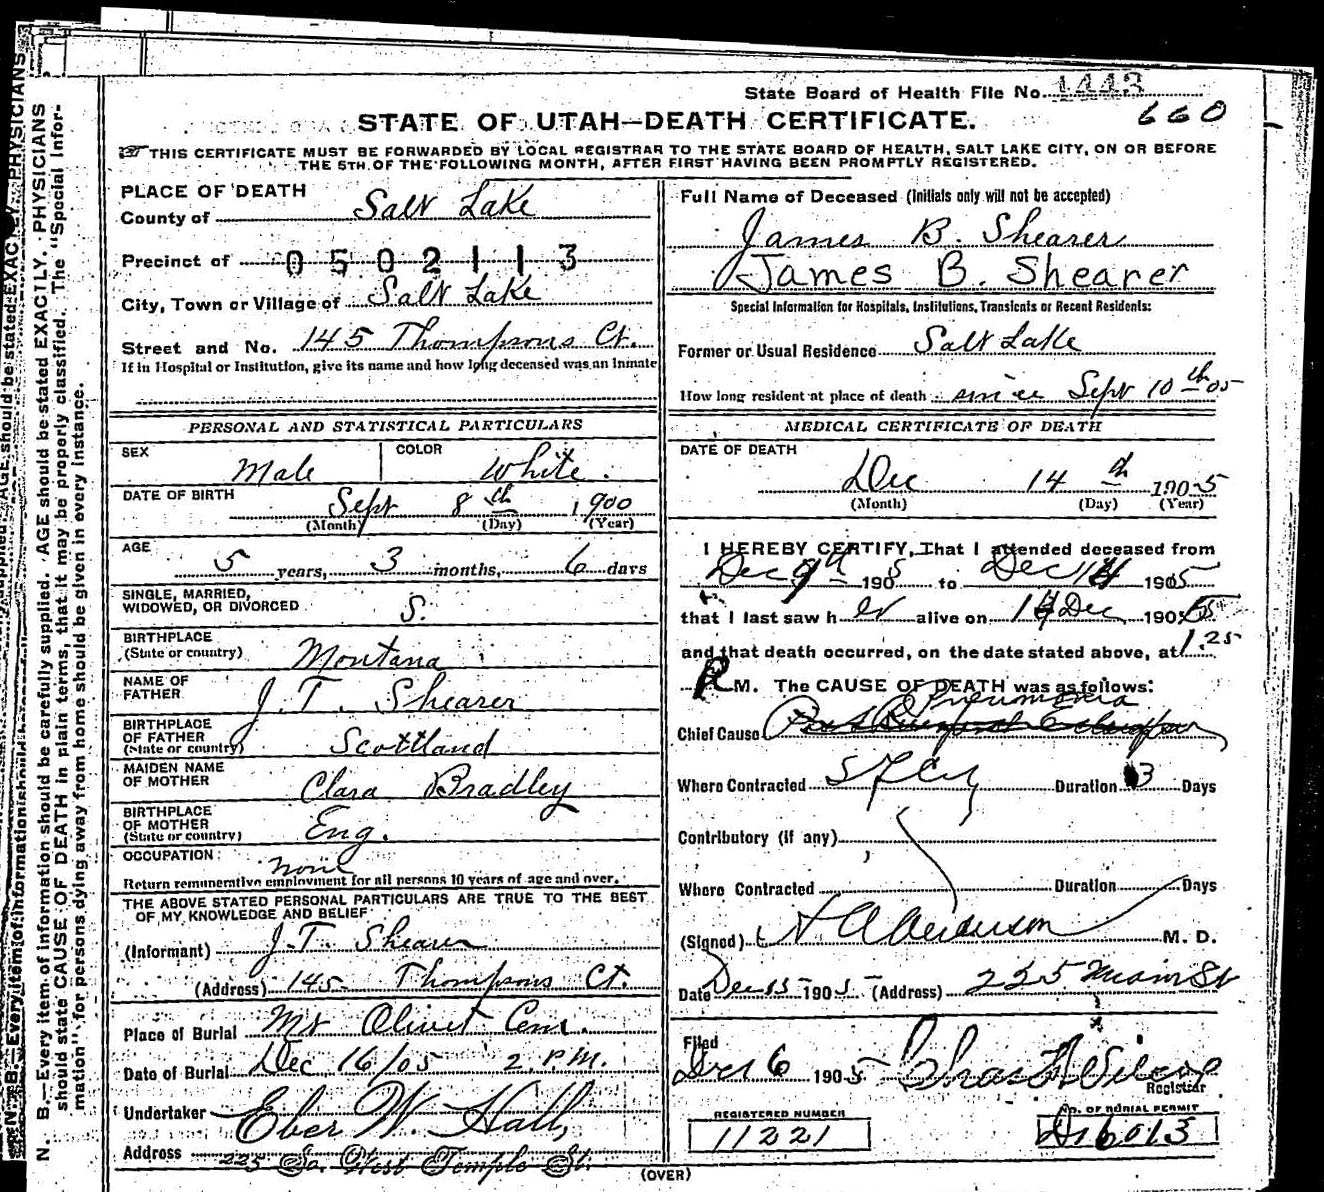 State Board of Health File No. 1443
660
STATE OF UTAH—DEATH CERTIFICATE.
THIS CERTIFICATE MUST BE FORWARDED BY LOCAL REGISTRAR TO THE STATE BOARD OF HEALTH, SALT LAKE CITY, ON OR BEFORE
THE 5TH OF THE FOLLOWING MONTH, AFTER FIRST HAVING BEEN PROMPTLY REGISTERED.
PLACE OF DEATH
County of Salt Lake
Precinct of 0502113
City, Town or Village of Salt Lake
Street and No. 145 Thompsons Ct.
If in Hospital or Institution, give its name and how long deceased was an inmate
PERSONAL AND STATISTICAL PARTICULARS
SEX Male COLOR White.
DATE OF BIRTH Sept 8th 1900
(Month) (Day) (Year)
AGE 5 years, 3 months, 6 days
SINGLE, MARRIED,
WIDOWED, OR DIVORCED S.
BIRTHPLACE
(State or country) Montana
NAME OF
FATHER J. T. Shearer
BIRTHPLACE
OF FATHER
(State or country) Scottland
MAIDEN NAME
OF MOTHER Clara Bradley
BIRTHPLACE
OF MOTHER
(State or country) Eng.
OCCUPATION none
Return remunerative employment for all persons 10 years of age and over.
THE ABOVE STATED PERSONAL PARTICULARS ARE TRUE TO THE BEST
OF MY KNOWLEDGE AND BELIEF
(Informant) J.T. Shearer
(Address) 145 Thompsons Ct.
Place of Burial Mt Olivet Cem.
Date of Burial Dec 16/05 2. P.M.
Undertaker Eber W. Hall,
Address 225 So. West Temple St.
Full Name of Deceased (Initials only will not be accepted)
James B. Shearer
James B. Shearer
Special Information for Hospitals, Institutions, Transients or Recent Residents:
Former or Usual Residence Salt Lake
How long resident at place of death since Sept 10th 05
MEDICAL CERTIFICATE OF DEATH
DATE OF DEATH
Dec 14th 1905
(Month) (Day) (Year)
I HEREBY CERTIFY, That I attended deceased from
Dec 9th 1905 to Dec 14 1905
that I last saw h alive on 14 Dec 1905
and that death occurred, on the date stated above, at 1.25
P M. The CAUSE OF DEATH was as follows:
Pneumonia
Chief Cause
Where Contracted S L City Duration 3 Days
Contributory (if any)
Where Contracted Duration Days
(Signed) M. D.
Date Dec 15 1905 (Address) 225 Main St
Filed
Dec 16 1905
Registrar
REGISTERED NUMBER
11221
No. OF BURIAL PERMIT
D16013
(OVER)
N. B.—Every item of information should be carefully supplied. AGE should be stated EXACTLY. PHYSICIANS
should state CAUSE OF DEATH in plain terms, that it may be properly classified. The "Special Infor-
mation" for persons dying away from home should be given in every instance.